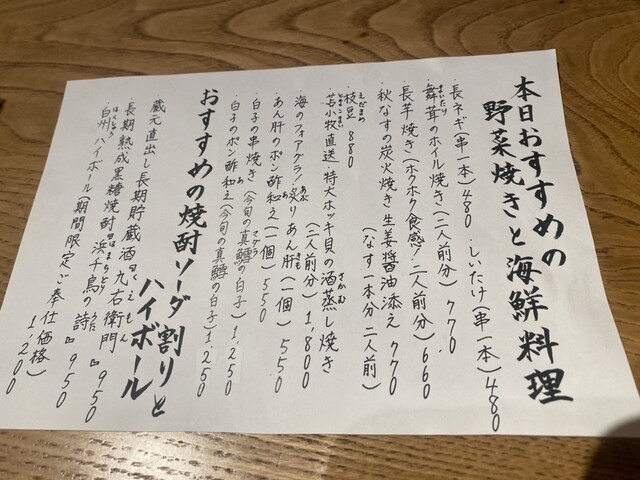 本日おすすめの
野菜焼きと海鮮料理
・長ネギ(串一本)480 ・しいたけ(串一本)480
・舞茸のホイル焼き(二人前分)770
・長芋焼き(ホクホク食感!二人前分)660
・秋なすの炭火焼き 生姜醤油添え 770
(なす一本分 二人前)
・枝豆 880
・苫小牧直送・特大ホッキ貝の酒蒸し焼き
(二人前分)1,800
・海のフォアグラ!炙りあん肝(一個)550
・あん肝のポン酢和え(一個)550
・白子の串焼き(今旬の真鱈の白子)1,250
・白子のポン酢和え(今旬の真鱈の白子)1,250
おすすめの焼酎ソーダ割りと
ハイボール
・蔵元直出し長期貯蔵酒 九右衛門 950
・長期熟成黒糖焼酎『浜千鳥の詩』950
・白州 ハイボール(期間限定ご奉仕価格)
1,200